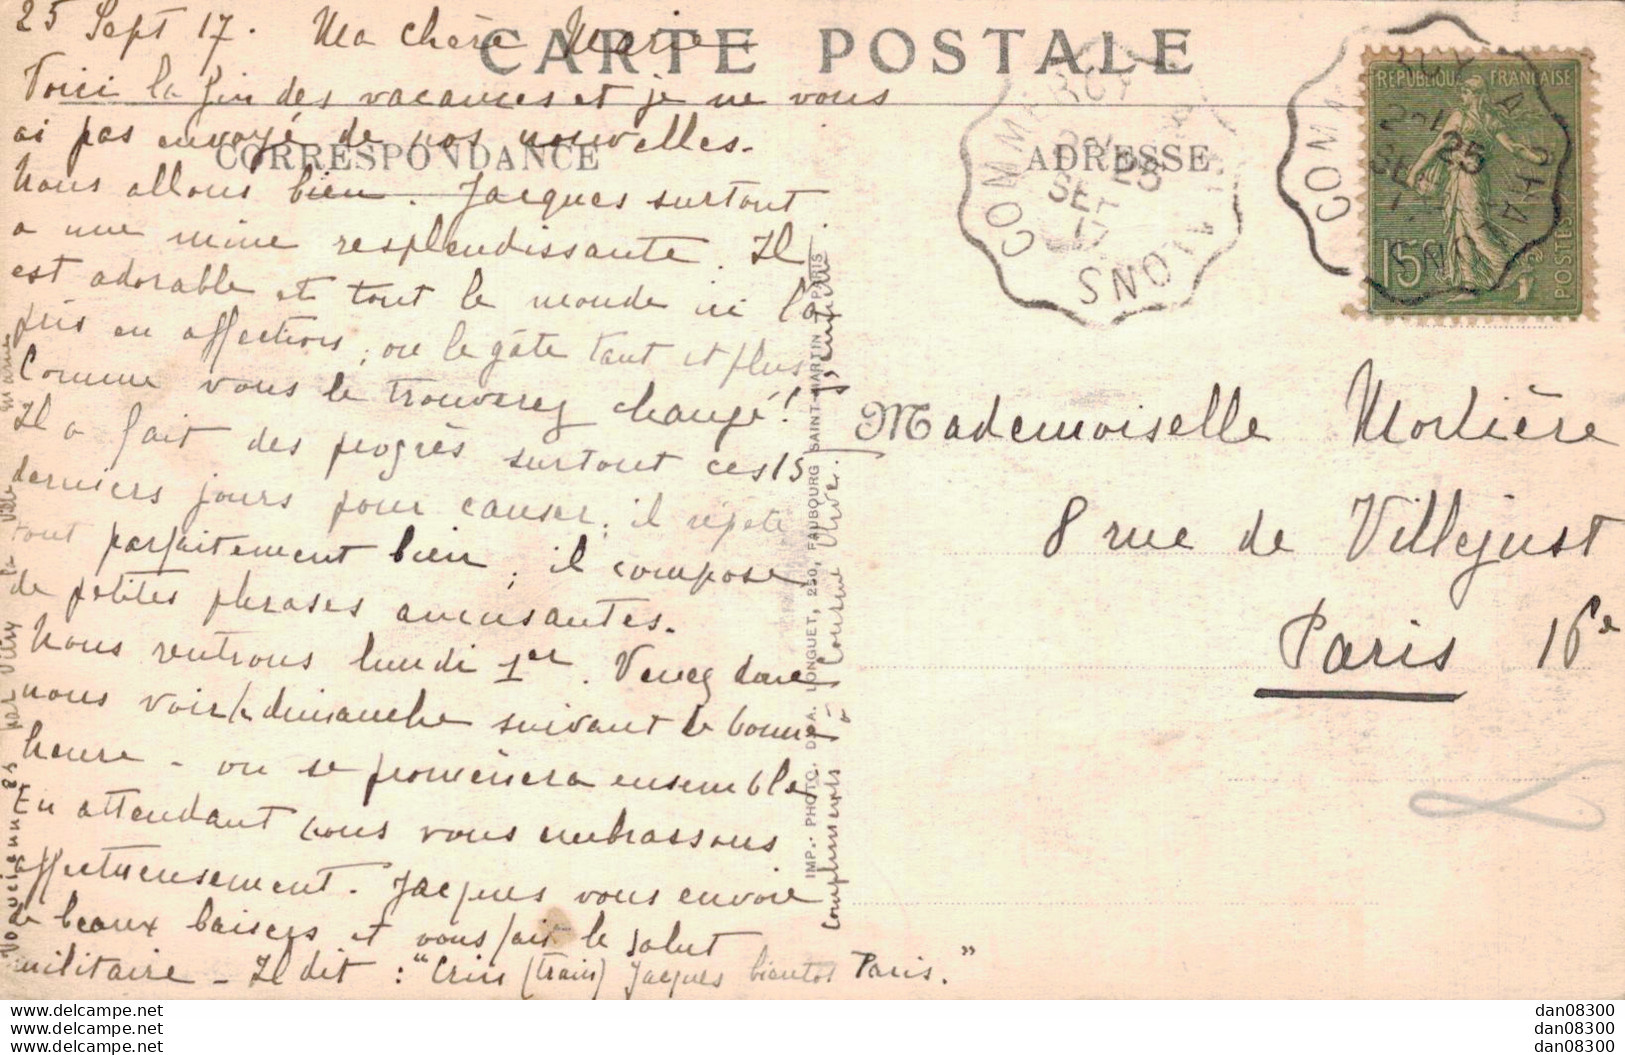 25 Sept 17. Ma chère Marie
Voici la fin des vacances et je ne vous
ai pas envoyé de nos nouvelles.
Nous allons bien. Jacques surtout
a une mine resplendissante. Il
est adorable et tout le monde ici l'a
pris en affection, on le gâte tant et plus
Comme vous le trouverez changé!
Il a fait des progrès surtout ces 15
derniers jours pour causer; il répète
tout parfaitement bien; il compose
de petites phrases amusantes.
Nous rentrons lundi 1er. Venez donc
nous voir le dimanche suivant de bonne
heure - on se promènera ensemble
En attendant nous vous embrassons
affectueusement. Jacques vous envoie
de beaux baisers et vous fait le salut
militaire - Il dit : "Crin (train) Jacques bientôt Paris."
Vouciennes par Vitry la Ville Marne
Compliments à
CARTE POSTALE
CORRESPONDANCE
ADRESSE
IMP.-PHOTO. D. A. LONGUET, 250, FAUBOURG SAINT-MARTIN PARIS
COMMERCY
25
SEPT
17
RÉPUBLIQUE FRANÇAISE
15c
POSTES
COMMERCY
25
SEPT
Mademoiselle Morlière
8 rue de Villejust
Paris 16e
dan08300
dan08300
dan08300
www.delcampe.net
www.delcampe.net
www.delcampe.net